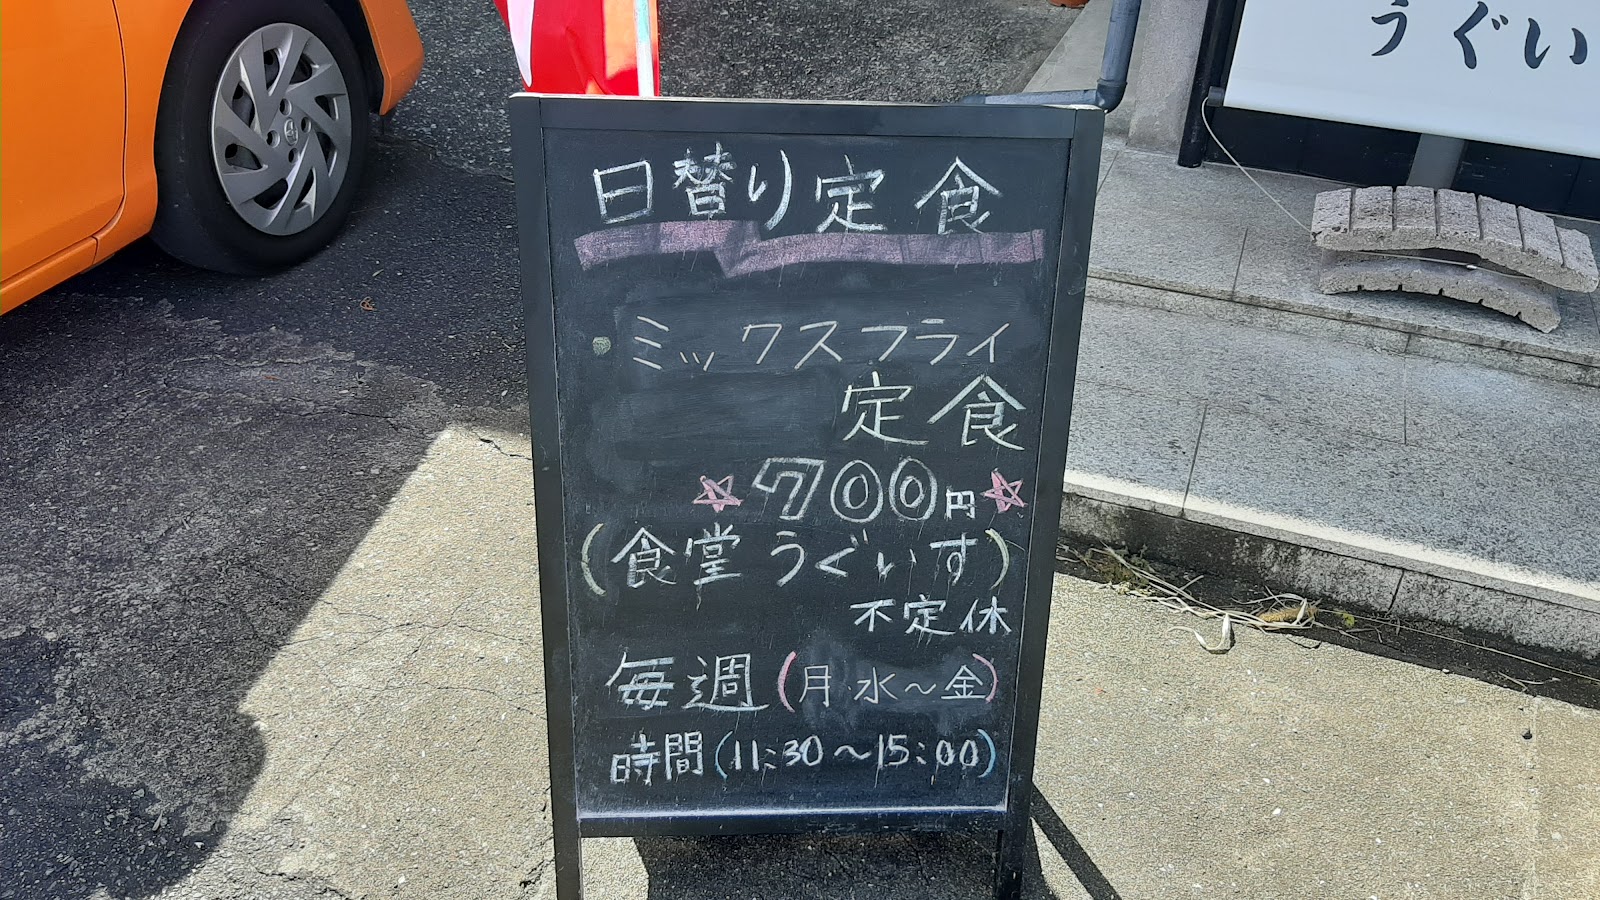 うぐい
日替り定食
・ミックスフライ
定食
☆700円☆
(食堂うぐいす)
不定休
毎週(月・水～金)
時間(11:30～15:00)